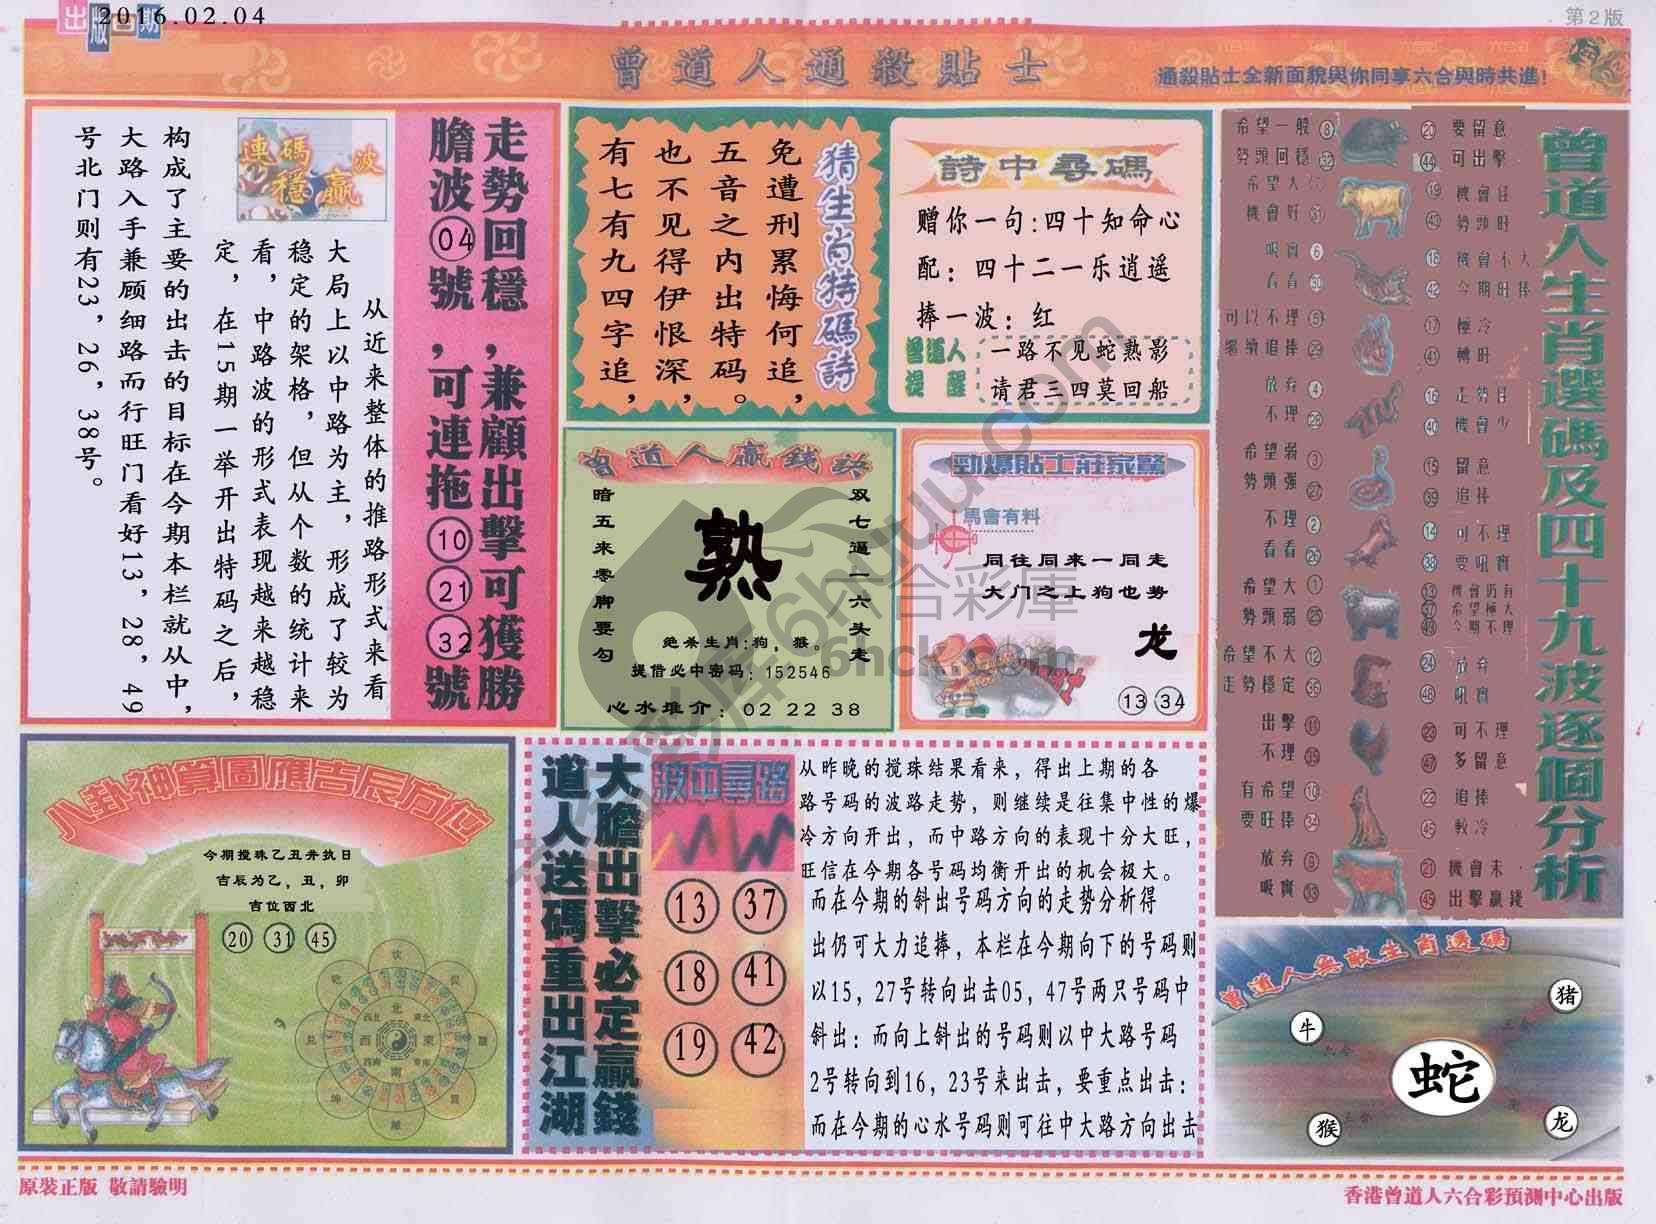 出版日期
2016.02.04
第2版
曾道人通殺貼士
通殺貼士全新面貌與你同享六合與時共進!
走勢回穩,兼顧出擊可獲勝
膽波04號,可連拖10 21 32號
連碼穩贏波
从近来整体的推路形式来看
大局上以中路为主,形成了较为
稳定的架格,但从个数的统计来
看,中路波的形式表现越来越稳
定,在15期一举开出特码之后,
构成了主要的出击的目标在今期本栏就从中,
大路入手兼顾细路而行旺门看好13,28,49
号北门则有23,26,38号。
猜生肖特碼詩
免遭刑累悔何追,
五音之内出特码。
也不见得伊恨深,
有七有九四字追,
詩中尋碼
赠你一句:四十知命心
配:四十二一乐逍遥
捧一波:红
曾道人提醒
一路不见蛇熟影
请君三四莫回船
曾道人贏錢訣
双七逼一六头走
暗五来零脚要勾
熟
绝杀生肖:狗,猴。
提借必中密码:152546
心水推介:02 22 38
勁爆貼士莊家驚
馬會有料
同往同来一同走
大门之上狗也势
龙
13 34
曾道人生肖選碼及四十九波逐個分析
希望一般 8
20 要留意
勢頭回穩 32
44 可出擊
希望大
19 機會旺
機會好 31
43 勢頭旺
吸實 6
18 機會不大
看看 30
42 今期旺捧
可以不理 5
17 極冷
繼續追捧 29
41 轉旺
放弃 4
16 走勢旺
不理 28
40 機會少
希望弱 3
15 留意
勢頭强 27
39 追捧
不理 2
14 可不理
看看 26
38 要吼實
希望大 1
13 機會仍有
37 希望極大
勢頭弱 25
49 今期不理
希望不大 12
24 放弃
走勢穩定 36
48 吼實
出擊 11
23 可不理
不理 35
47 多留意
有希望 10
22 追捧
要旺捧 34
較冷
放弃 9
21 機會未
吸實 33
45 出擊贏錢
八卦神算圖應吉辰方位
今期搅珠乙丑井执日
吉辰为乙,丑,卯
吉位西北
20 31 45
北
東北
東
南
西南
西
西北
大膽出擊必定贏錢
道人送碼重出江湖
波中尋路
13 37
18 41
19 42
从昨晚的搅珠结果看来,得出上期的各
路号码的波路走势,则继续是往集中性的爆
冷方向开出,而中路方向的表现十分大旺,
旺信在今期各号码均衡开出的机会极大。
而在今期的斜出号码方向的走势分析得
出仍可大力追捧,本栏在今期向下的号码则
以15,27号转向出击05,47号两只号码中
斜出:而向上斜出的号码则以中大路号码
2号转向到16,23号来出击,要重点出击:
而在今期的心水号码则可往中大路方向出击
曾道人無敵生肖選碼
猪
牛
蛇
猴
龙
原裝正版 敬請驗明
香港曾道人六合彩預測中心出版
六合彩库
6hck.com